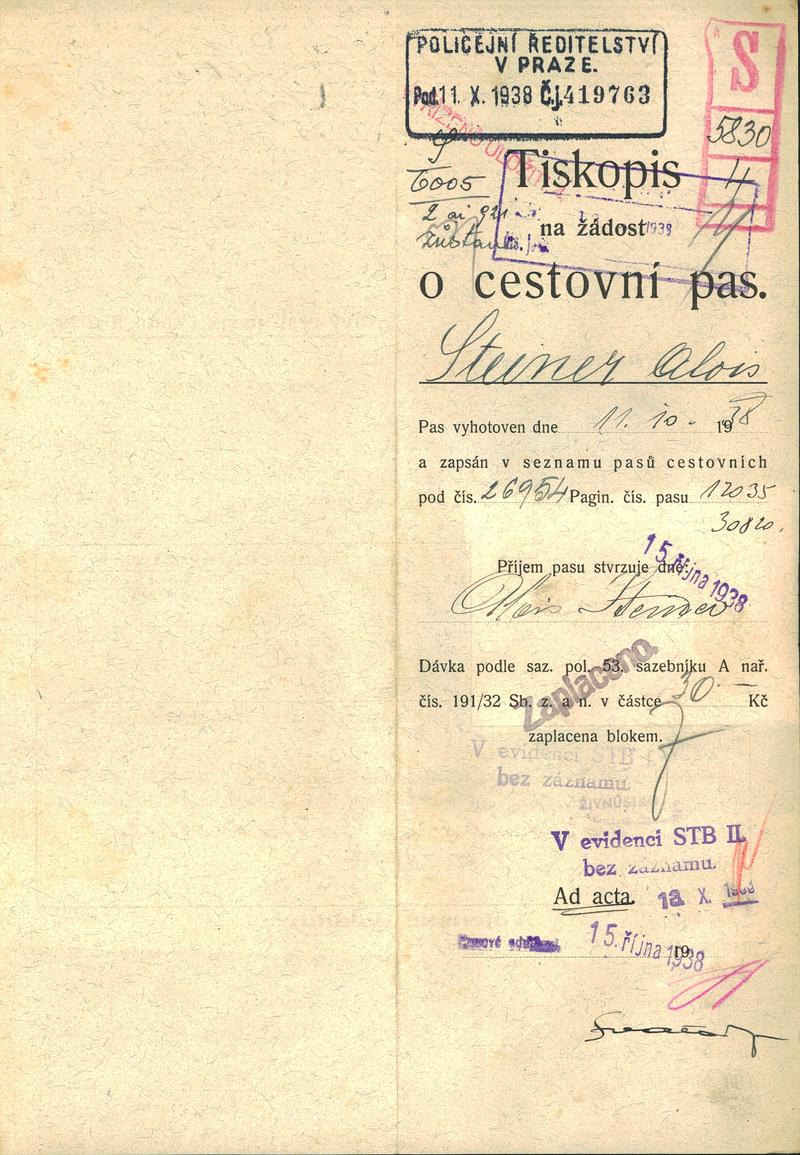 POLICEJNÍ ŘEDITELSTVÍ
V PRAZE.
Pod. 11. X. 1938 Č.j. 419763
S
5830
4
6005
Tiskopis
na žádost
1938
o cestovní pas.
Steiner Alois
Pas vyhotoven dne 11. 10. 1938
a zapsán v seznamu pasů cestovních
pod čís. 26954 Pagin. čís. pasu 12035
30820.
15. října 1938
Příjem pasu stvrzuje dne:
Alois Steiner
Dávka podle saz. pol. 53. sazebníku A nař.
Zaplaceno.
čís. 191/32 Sb. z. a n. v částce 30.— Kč
zaplacena blokem.
V evidenci STB
bez záznamu
V evidenci STB II.
bez záznamu.
Ad acta. X.
15. října 1938
19